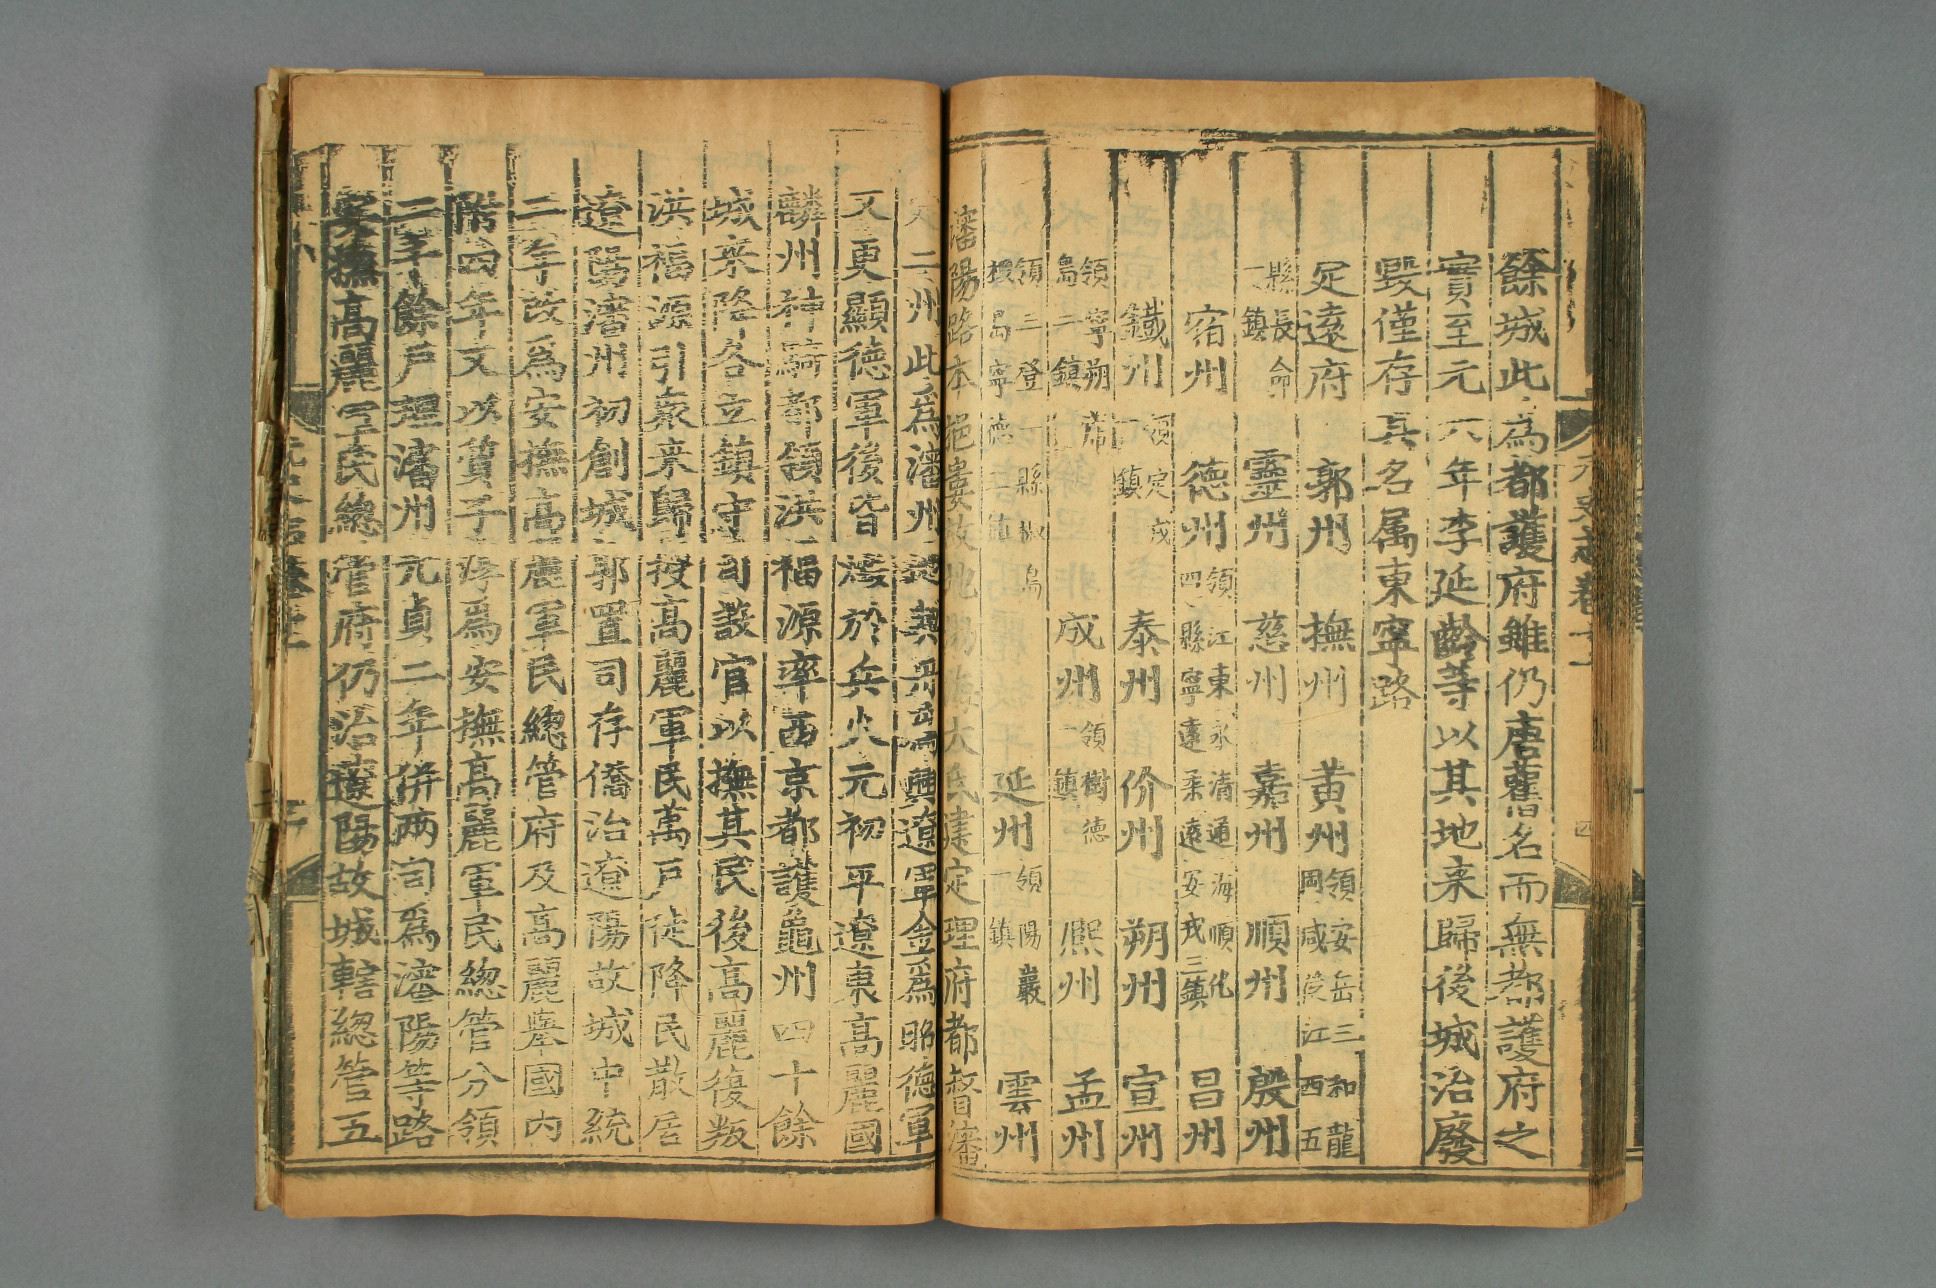 元史志卷十一
四
餘城此為都護府雖仍唐舊名而無都護府之
實至元六年李延齡等以其地来歸後城治廢
毀僅存其名属東寧路
定遠府 郭州 撫州 黄州領安岳三和龍
岡咸從江西五
縣長命
一鎮 靈州 慈州 嘉州 順州 殷州
宿州 德州領江東永清通海順化
四縣寧遠柔遠安戎三鎮 昌州
鐵州領定戎
一鎮 泰州 价州 朔州 宣州
領寧朔席
島二鎮 成州領樹德
鎮 熙州 孟州
領三登一縣椒島
椴島寧德三鎮 延州領陽巖
一鎮 雲州
瀋陽路本挹婁故地渤海大氏建定理府都督瀋
定二州此為瀋州 興遼軍金為昭德軍
又更顯德軍後皆燬於兵火元初平遼東高麗國
麟州神騎都領洪福源率西京都護龜州四十餘
城来降各立鎮守司設官以撫其民後高麗復叛
洪福源引衆来歸授高麗軍民萬戸徙降民散居
遼陽瀋州初創城郭置司存僑治遼陽故城中統
二年改為安撫高麗軍民總管府及高麗舉國内
附四年又以質子淳為安撫高麗軍民總管分領
二千餘戸理瀋州元貞二年併兩司為瀋陽等路
安撫高麗軍民總管府仍治遼陽故城轄總管五